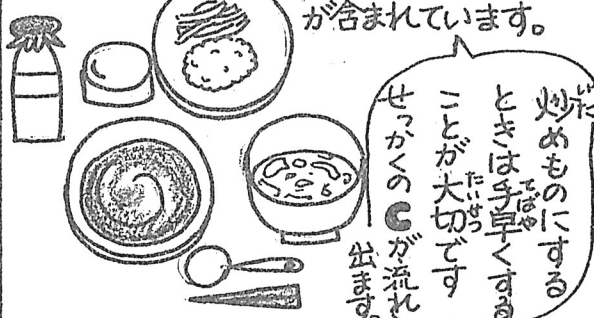 が含まれています。
炒めものにする
ときは手早くする
ことが大切です
せっかくのCが流れ
出ます。